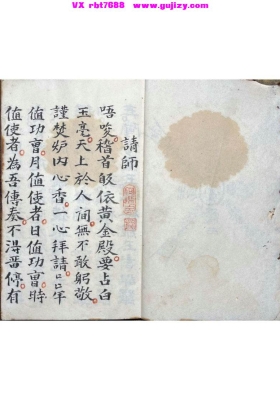 VX rbt7688 www.gujizy.com
請師
唔唆稽首皈依黃金殿要占白
玉毫天上於人间無不敢躬敬
謹焚炉內心香一心拜請㠯㠯年
值功曹月值使者日值功曹時
值使者為吾傳奏不得晋停有